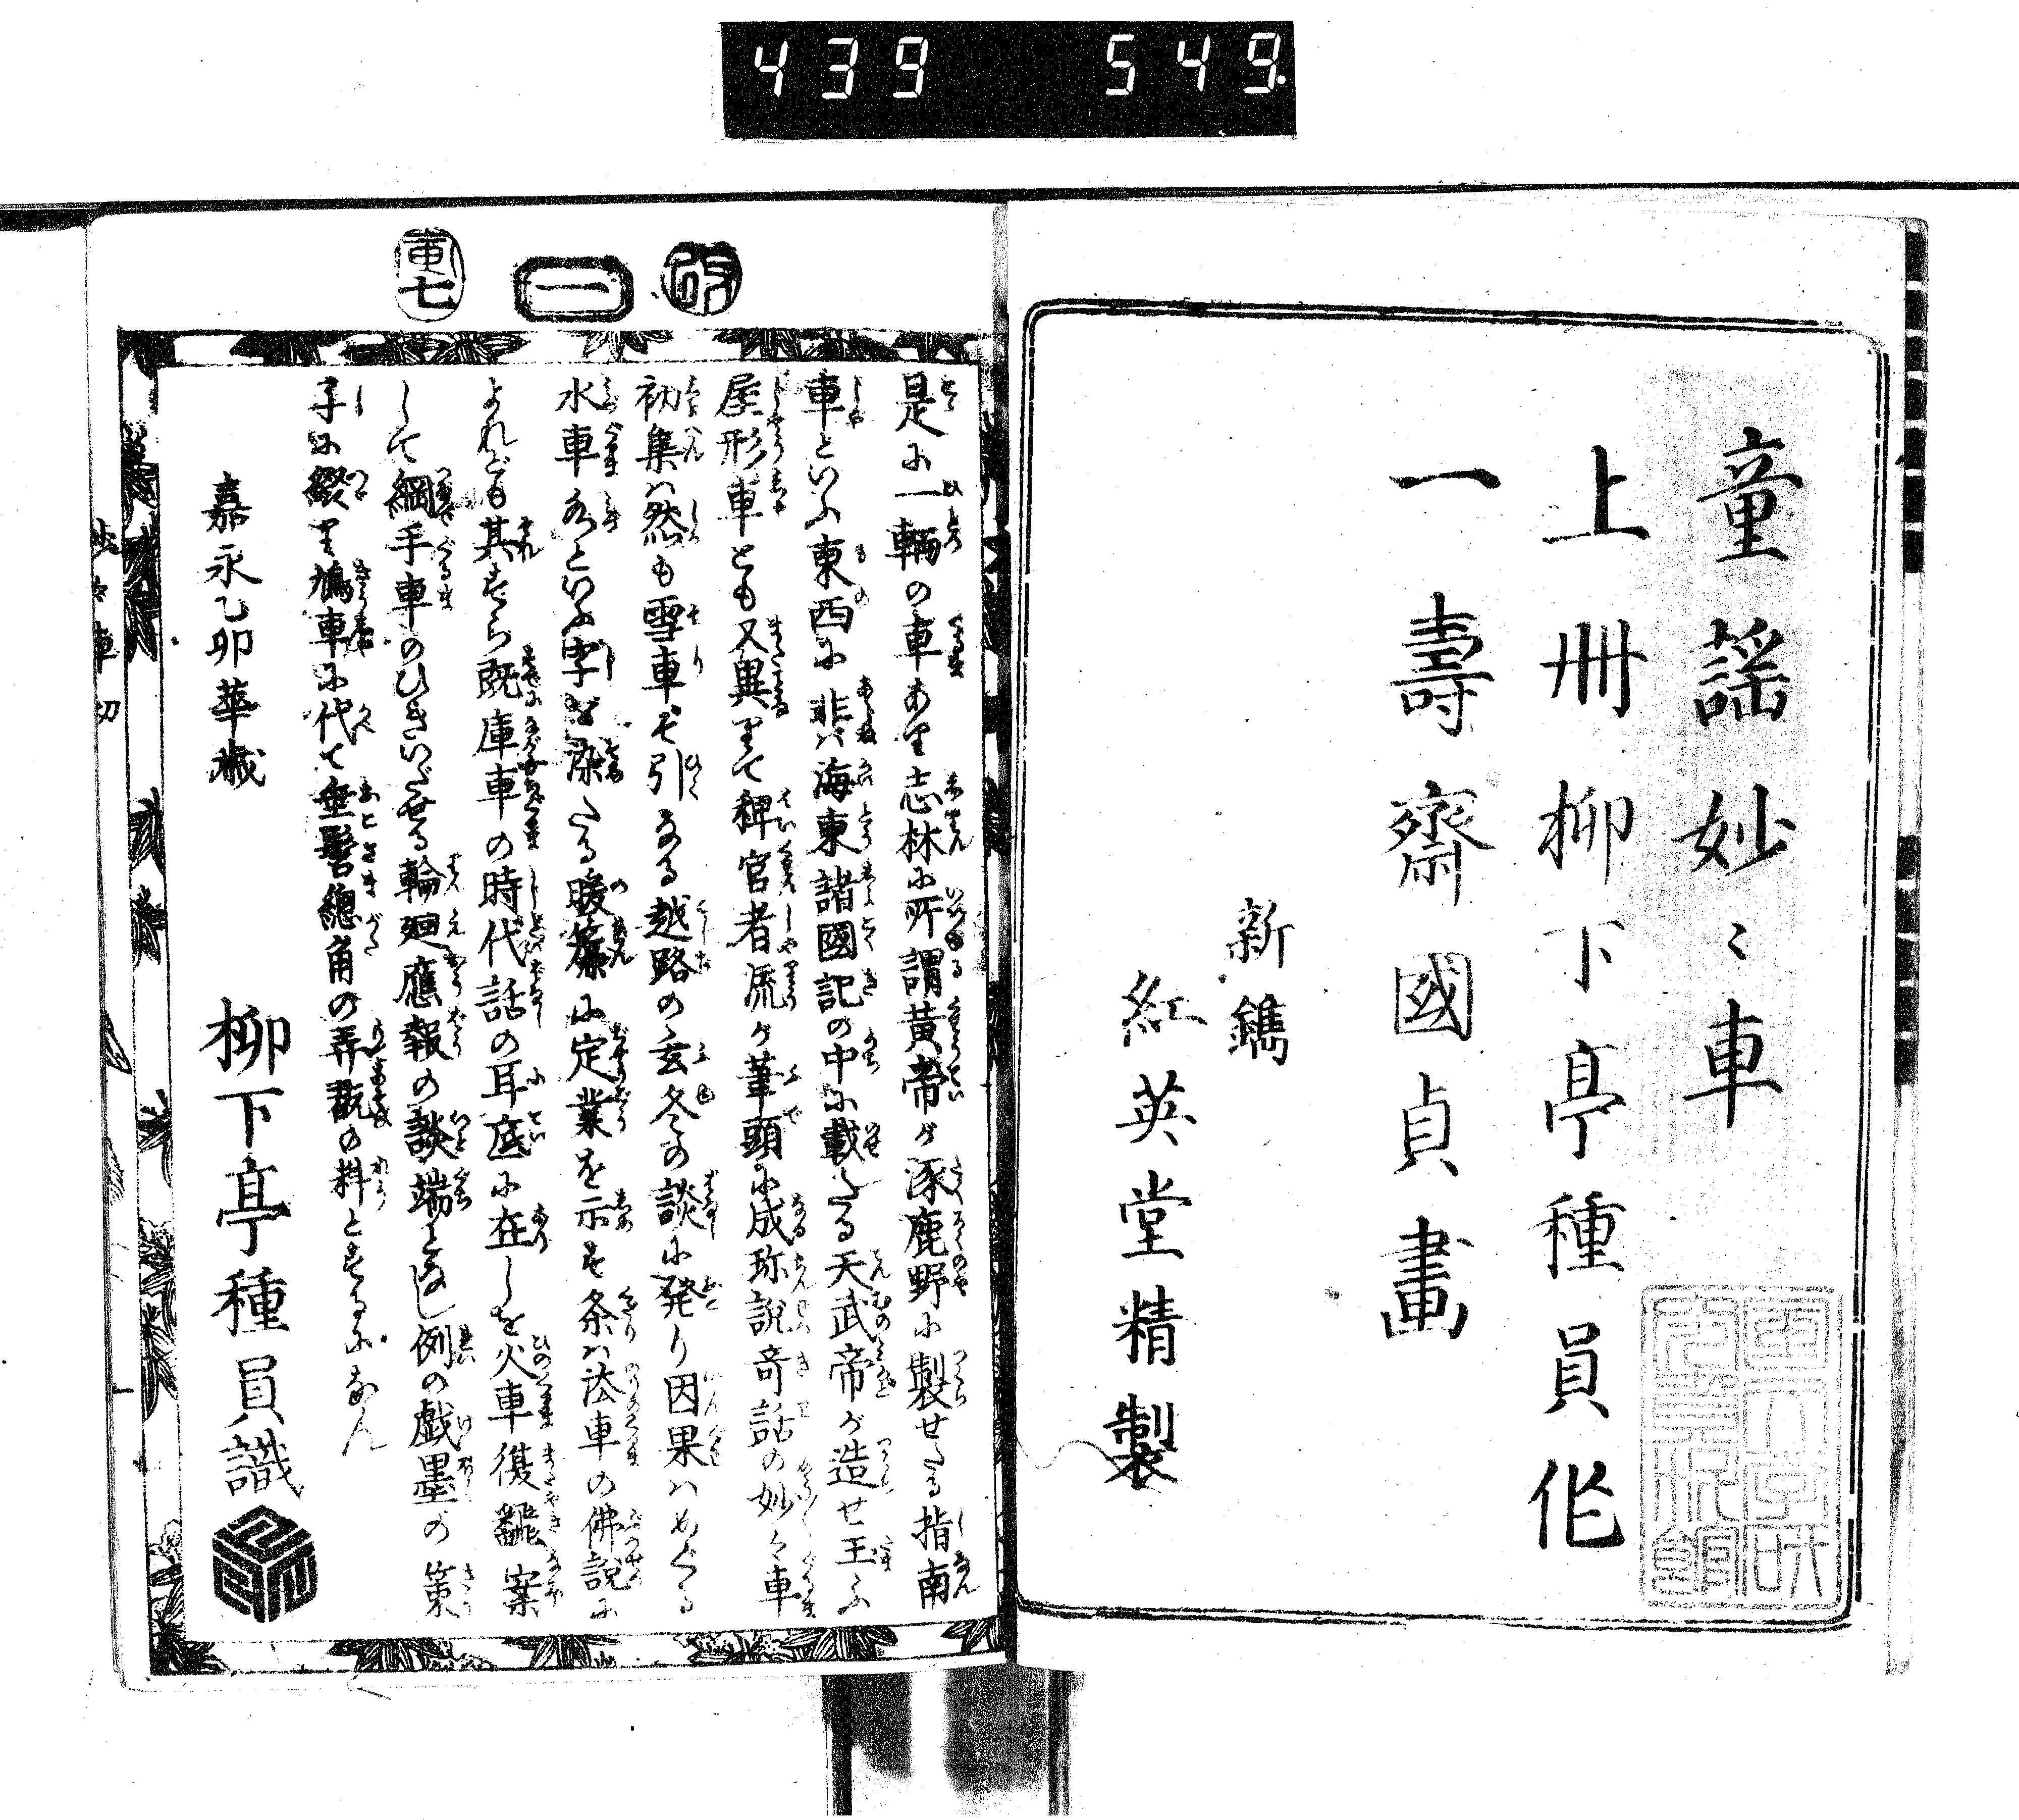 439 549
童謡妙々車
上州柳下亭種員作
一壽齋國貞畫
新鐫
紅英堂精製
改
一
寅七
是に一輌の車あり志林に所謂黄帝が涿鹿野に製せたる指南
車といふ東西に非ず海東諸國記の中に載たる天武帝が造せ玉ふ
屋形車とも又異りて稗官者流が筆頭に成珎説竒話の妙々車
初集は然も雪車もて引なる越路の玄冬の談に発り因果はめぐる
水車てふといふ字を染たる暖簾に定業を示す条は法車の佛説に
よれども其すら既庫車の時代話の耳底に在しを火車復飜案
して綱手車のひきいだせる輪廻應報の談端となし例の戯墨の策
子に綴りて鳩車に代て垂髫總角の弄翫の料とするになん
嘉永乙卯華歳
柳下亭種員識